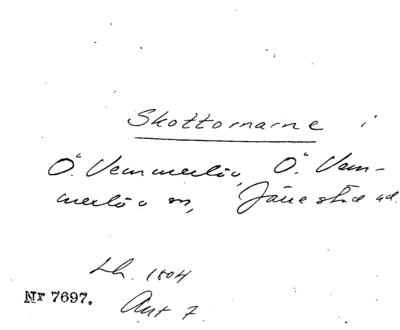 Skottornarne i
Ö. Vemmerlöv, Ö. Vem-
merlövs sn, Järrestad
Lh. 1804
Nr 7697. Akt 7